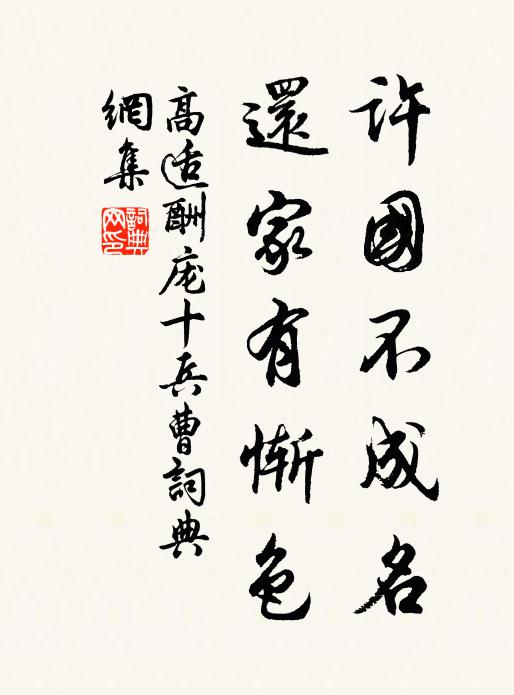 許國不成名
還家有慚色
高适酬庞十兵曹詞典
網集
詞典
网印